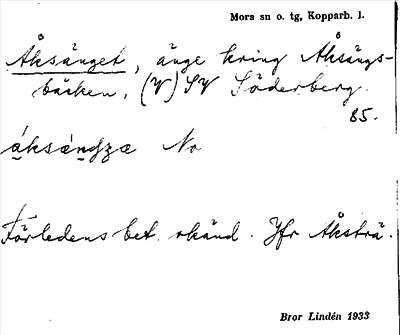 Mora sn o. tg, Kopparb. l.
Åksänget, änge kring Åksängs-
bäcken, (V) SV Söderberg.
85.
áksán̠dʒæ No
Förledens bet. okänd. Jfr Åksträ.
Bror Lindén 1933